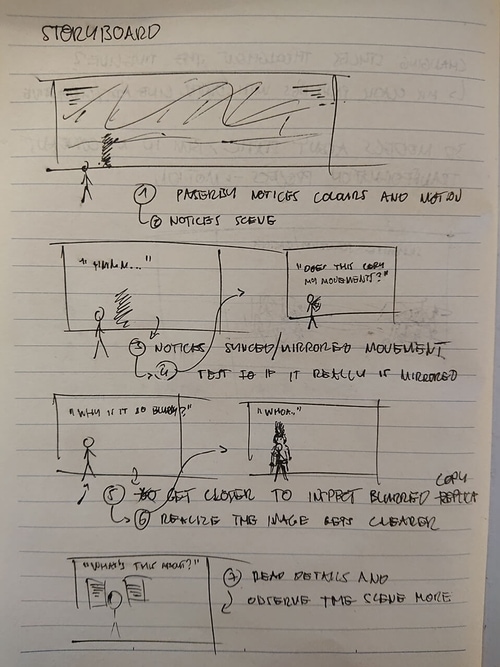 STORYBOARD
① PASSERBY NOTICES COLOURS AND MOTION
② NOTICES SCENE
"HMMM..."
"DOES THIS COPY
MY MOVEMENTS?"
③ NOTICES SYNCED/MIRRORED MOVEMENT
④ TEST IF IT REALLY IS MIRRORED
"WHY IS IT SO BLURRY?"
"WHOA.."
⑤ GET CLOSER TO INSPECT BLURRED COPY
⑥ REALIZE THE IMAGE GETS CLEARER
"WHAT'S THIS ABOUT?"
⑦ READ DETAILS AND
OBSERVE THE SCENE MORE